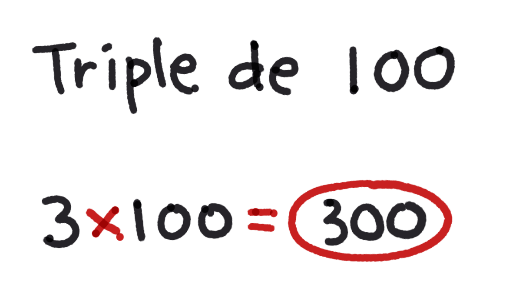 Triple de 100
3×100=300